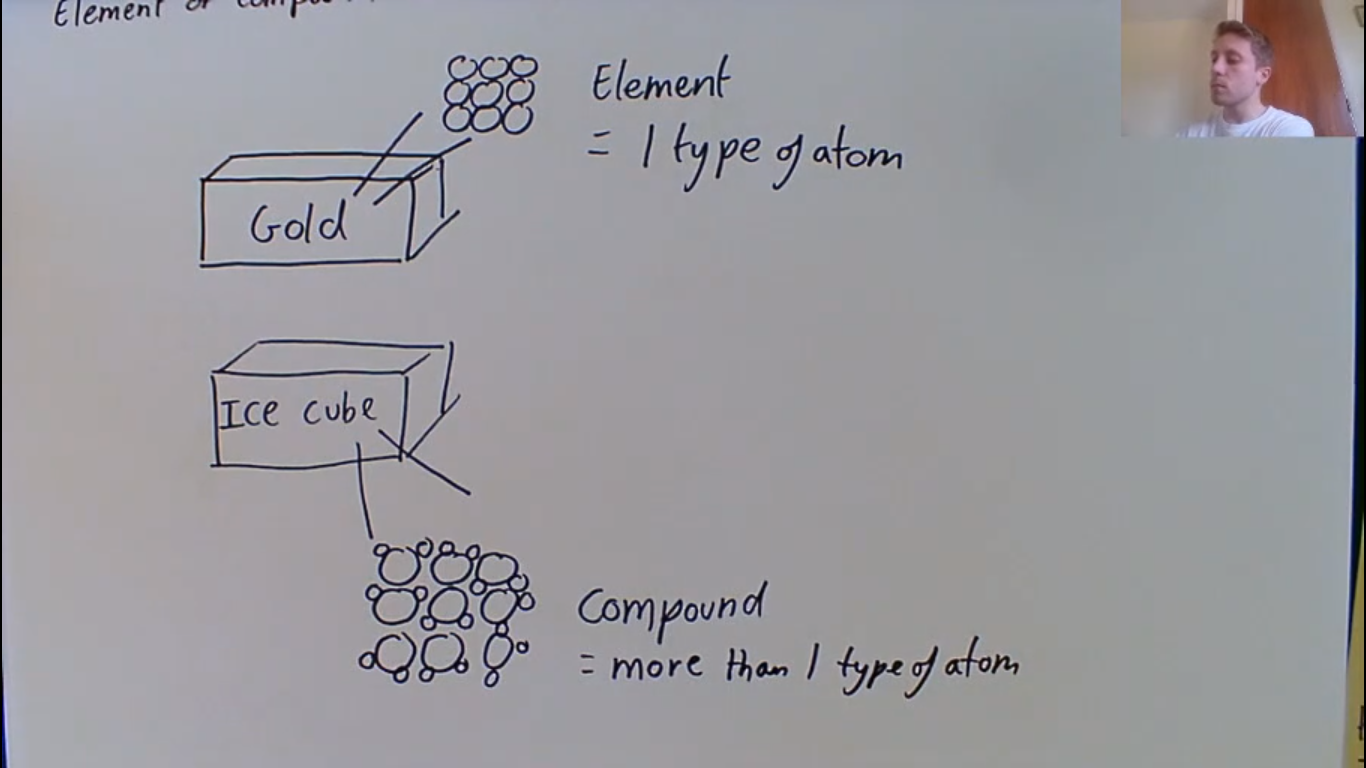 Element or
Element
= 1 type of atom
Gold
Ice cube
Compound
= more than 1 type of atom